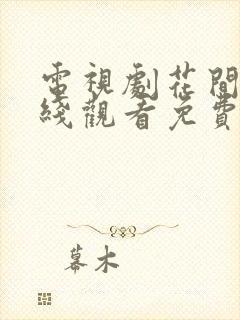 電視劇花間
綫觀看免費
幕木